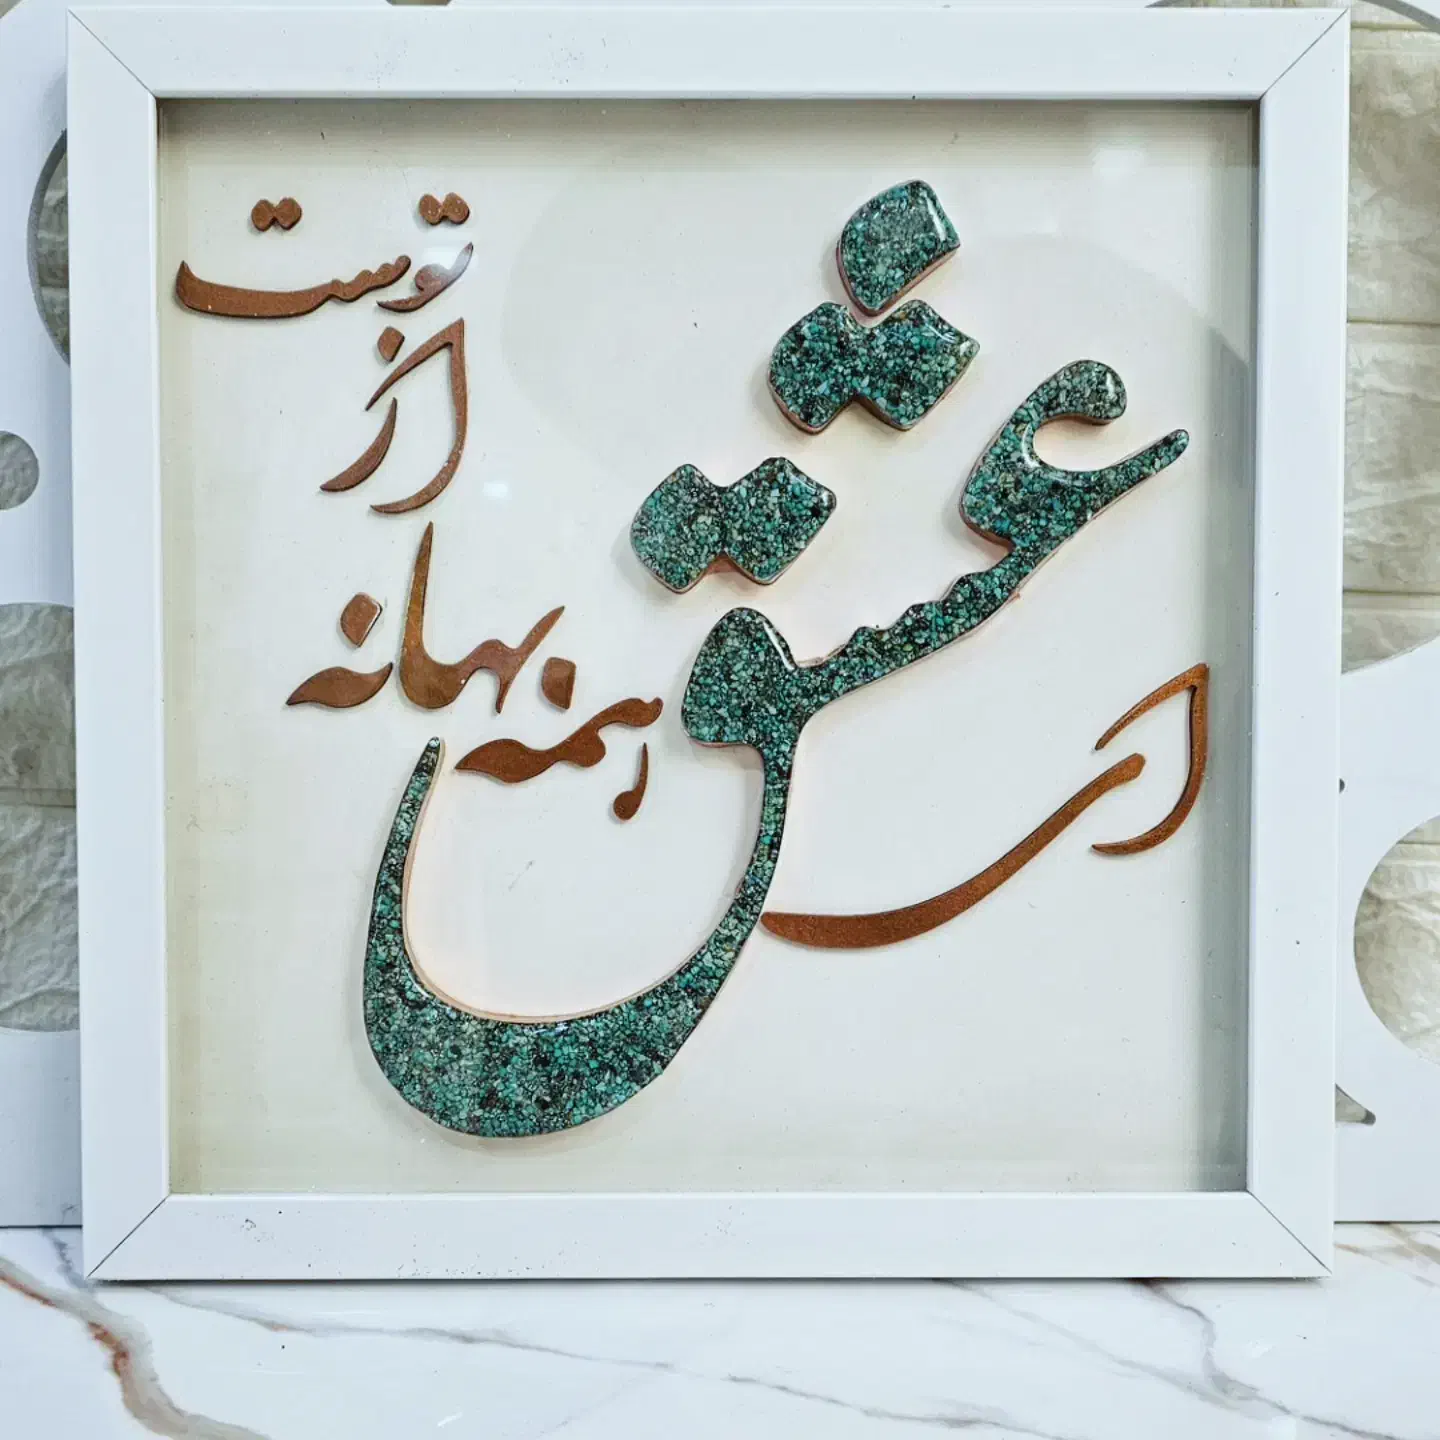 ای عشق
همه
بهانه
از
توست